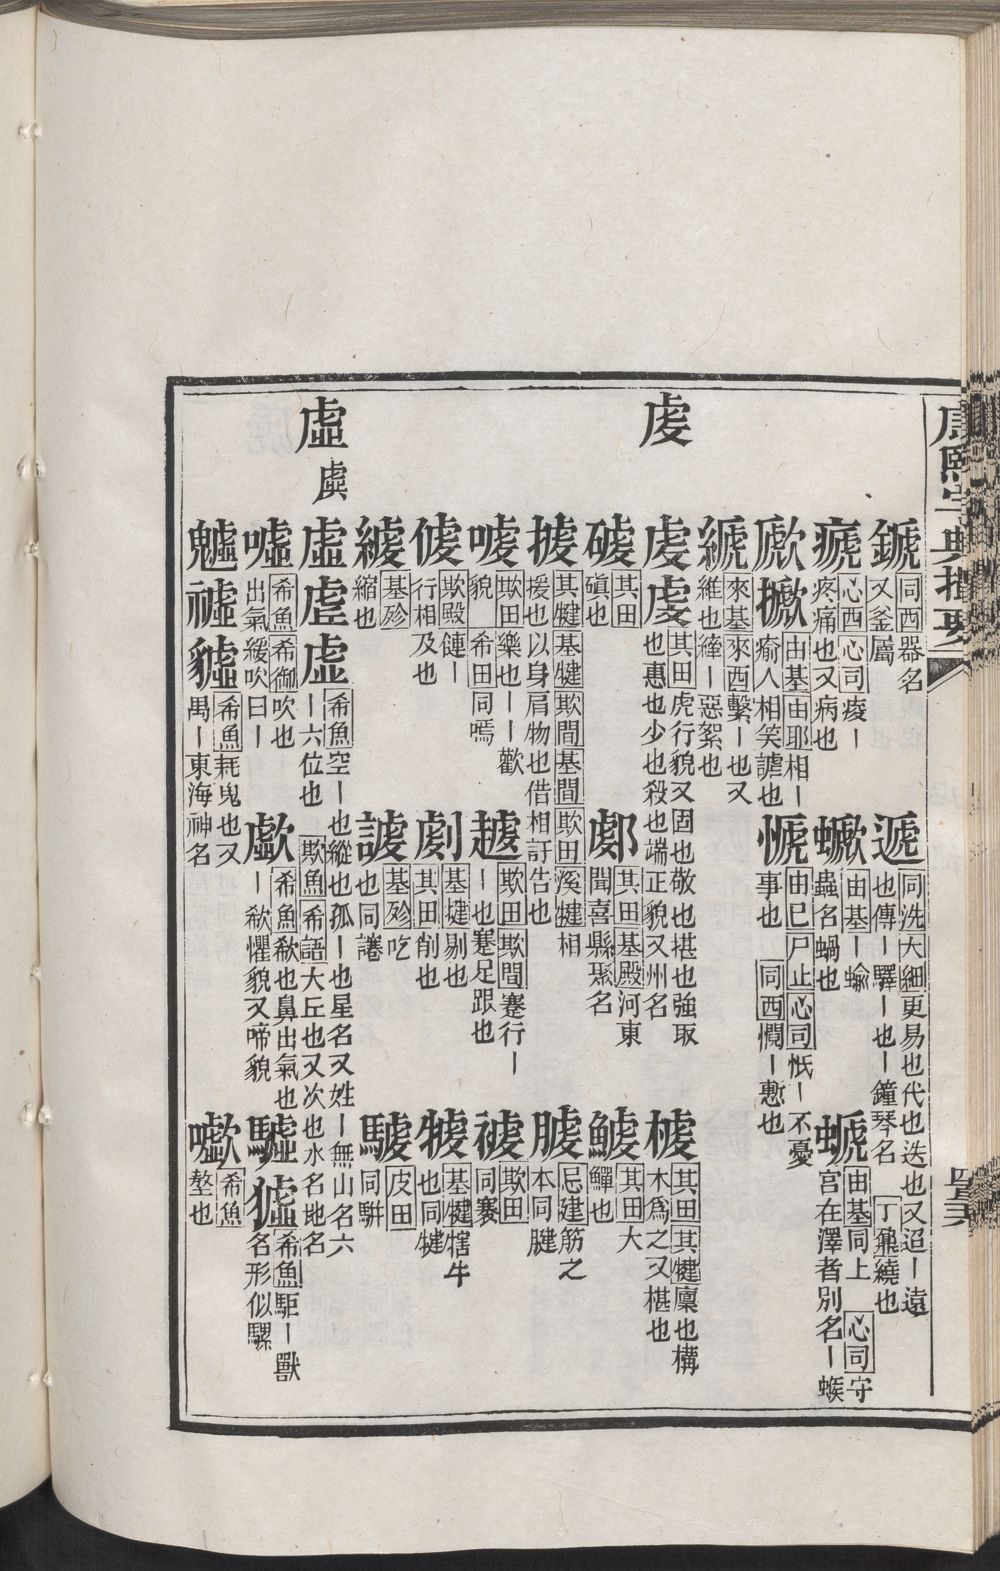 康熙字典撮要
同西器名又釜屬
遞 同洗大細更易也代也迭也又迢ー遠也傳ー驛ー也ー鐘琴名丁鼐繞也
心西心司痠ー疼痛也又病也
由基ー蝓蟲名蝸也
螔 由基同上心司守宮在澤者別名ー螏
歋擨 由基由耶相ー瘉人相笑謔也
由巳尸止心司忯ー不憂事也同西憪ー慙也
來基來西繫ー也又維也繂ー惡絮也
虔
虔䖍 其田虎行貌又固也敬也堪也強取也惠也少也殺也端正貌又州名
榩 其田其犍廩也構木爲之又椹也
其田磌也
其田基殿河東聞喜縣聚名
鰬 其田大鱓也
其犍基犍欺間基間欺田溪犍相援也以身肩物也借相訐告也
忌建筋之本同腱
欺田樂也ーー歡貌希田同嘕
欺田欺間蹇行ー也蹇足跟也
欺田同褰
欺殿健ー行相及也
劇 基犍剔也其田削也
基犍犗牛也同犍
基殄縮也
基殄吃也同謇
皮田同騈
虛 虡
虛虗虚 希魚空ー也縱也孤ー也星名又姓ー無山名六ー六位也欺魚希語大丘也又次也水名地名
噓 希魚希御吹也出氣緩吹曰ー
歔 希魚欷也鼻出氣也ー欷懼貌又啼貌
驉 希魚駏ー獸名形似騾
魖 希魚耗鬼也又禺ー東海神名
希魚嫯也